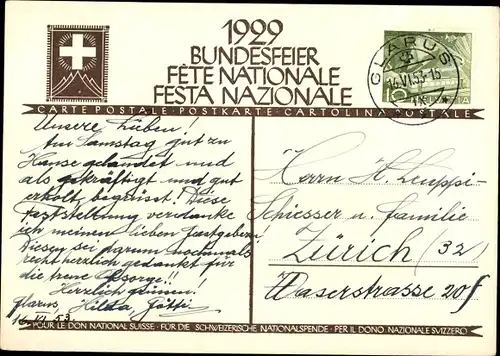 1929
BUNDESFEIER
FÊTE NATIONALE
FESTA NAZIONALE
GLARUS
14.VI.53-15
10
HELVETIA
CARTE POSTALE · POSTKARTE · CARTOLINA POSTALE
Unsere Lieben!
Am Samstag gut zu
Hause gelandet und
als gekräftigt und gut
erholt begrüsst! Diese
Feststellung verdanke
ich meinen lieben Gastgebern!
Diesen sei darum nochmals
recht herzlich gedankt für
die treue Obsorge!!
Herzlich grüssen!
Glarus, Hilda, Götti
14.VI.53.
Herrn H. Leuppi-
Schiesser u. Familie
Zürich (32)
Waserstrasse 20f
POUR LE DON NATIONAL SUISSE · FÜR DIE SCHWEIZERISCHE NATIONALSPENDE · PER IL DONO NAZIONALE SVIZZERO